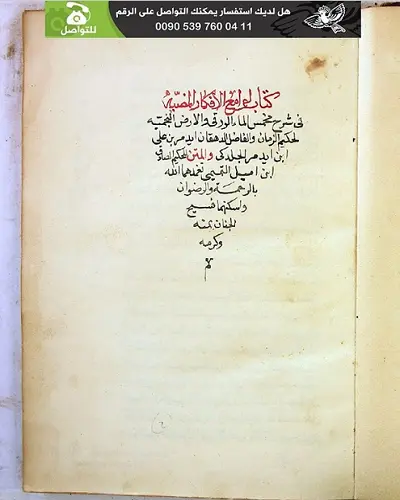 هل لديك استفسار يمكنك التواصل على الرقم
0090 539 760 04 11
للتواصل
كتاب لوامع الافكار المضيئه
فى شرح مخمس الماء الورقى والارض النجميه
لحكيم الزمان والفاضل الدهقان ايدمر بن على
ابن ايدمر الجلدكى والمتن للحكيم
ابن اميل التميمى تغمدهما الله
بالرحمة والرضوان
واسكنهما فسيح
الجنان بمنه
وكرمه
م